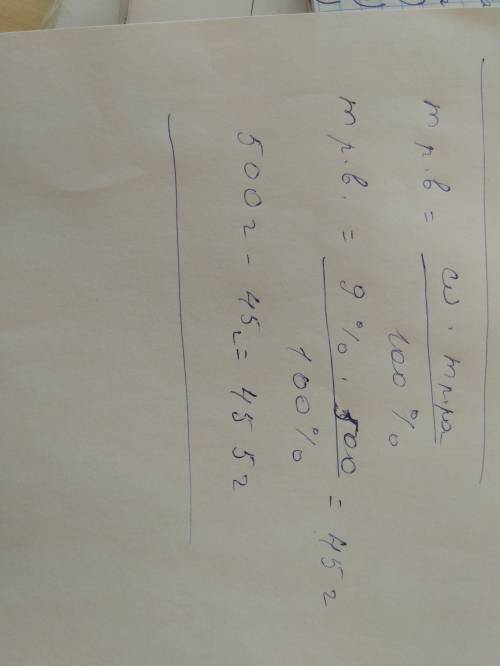 m р.в = ω · m р-ра
100%
m р.в. = 9% · 500 = 45 г
100%
500 г - 45 г = 455 г